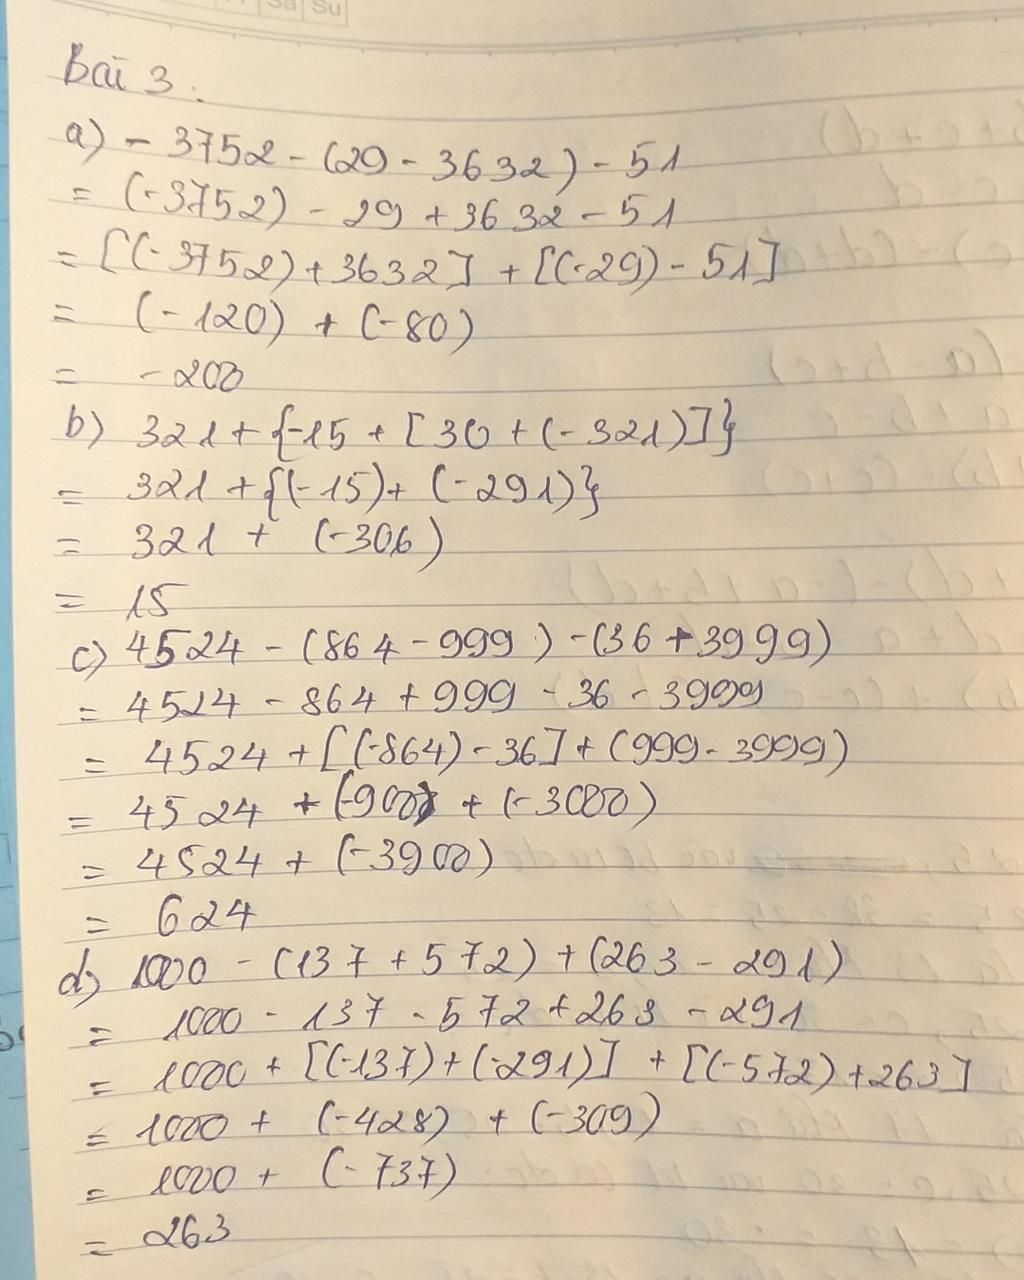 Sa Su
Bài 3.
a) - 3752 - (29 - 3632) - 51
= (-3752) - 29 + 3632 - 51
= [(-3752) + 3632] + [(-29) - 51]
= (-120) + (-80)
= -200
b) 321 + {-15 + [30 + (-321)]}
= 321 + {(-15) + (-291)}
= 321 + (-306)
= 15
c) 4524 - (864 - 999) - (36 + 3999)
= 4524 - 864 + 999 - 36 - 3999
= 4524 + [(-864) - 36] + (999 - 3999)
= 4524 + (-900) + (-3000)
= 4524 + (-3900)
= 624
d) 1000 - (137 + 572) + (263 - 291)
= 1000 - 137 - 572 + 263 - 291
= 1000 + [(-137) + (-291)] + [(-572) + 263]
= 1000 + (-428) + (-309)
= 1000 + (-737)
= 263